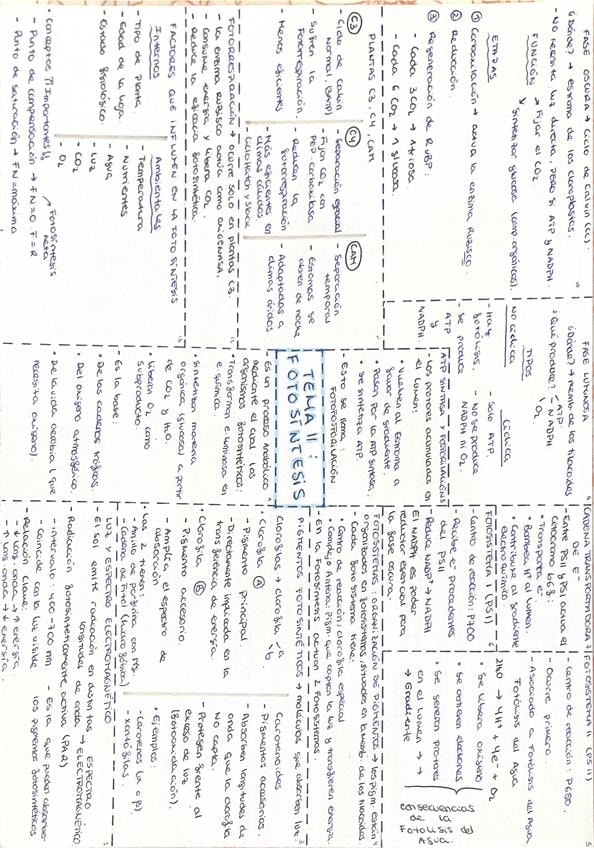 TEMA 11:
FOTOSÍNTESIS
Es un proceso Anabólico
mediante el cual los
organismos fotosintéticos:
• Transforman e. luminosa en
e. química.
• Sintetizan materia
orgánica (glucosa) a partir
de CO2 y H2O.
• Liberan O2 como
subproducto.
- Es la base:
• De las cadenas tróficas.
• Del oxígeno atmosférico.
• De la vida aerobia (que
necesita oxígeno)
LUZ Y ESPECTRO ELECTROMAGNÉTICO
- El sol emite radiación en distintas
longitudes de onda → ESPECTRO
ELECTROMAGNÉTICO
- Radiación fotosintéticamente activa (PAR)
- Intervalo: 400-700 nm
- Coincide con la luz visible
- Es la que pueden absorber
los pigmentos fotosintéticos
- Relación clave:
↓ Long onda → ↑ energía
↑ Long onda → ↓ energía.
PIGMENTOS FOTOSINTÉTICOS → moléculas que absorben luz
Clorofilas → clorofila a
b
Clorofila (A)
- Pigmento principal.
- Directamente implicada en la
transferencia de energía.
Clorofila (B)
- Pigmento accesorio
Amplía el espectro de
absorción
Las 2 tienen:
- Anillo de porfirina con Mg.
- Cadena de Fitol (hidrofóbica)
Carotenoides
- Pigmentos accesorios.
- Absorben longitudes de
onda que la clorofila
no capta.
- Protegen frente al
exceso de luz
(fotooxidación).
• Ejemplos:
- Carotenos (α o β)
- Xantofilas.
FOTOSISTEMAS: ORGANIZACIÓN DE PIGMENTOS → los pigm. están
organizados en los fotosistemas, situados en la memb. de los tilacoides
Cada fotosistema tiene:
• Centro de reacción: clorofila especial
• Complejo Antena: pigm. que captan la luz y transfieren energía.
- En la fotosíntesis actúan 2 fotosistemas.
FOTOSISTEMA II (PS II)
- Centro de reacción: P680.
- Ocurre primero.
- Asociado a Fotólisis del Agua
Fotólisis del Agua
2H2O → 4H+ + 4e- + O2
• Se libera oxígeno
• Se obtienen electrones
• Se generan protones
en el lumen →
→ Gradiente
Consecuencias
de la
Fotólisis del
Agua.
CADENA TRANSPORTADORA
DE E-
- Entre PSII y PSI actúa el
citocromo b6f:
• Transporta e-
• Bombea H+ al lumen.
• Contribuye al gradiente
electroquímico
FOTOSISTEMA I (PSI)
- Centro de reacción: P700
- Recibe e- procedentes
del PSII
- Reduce NADP+ → NADPH
El NADPH es poder
reductor esencial para
la fase oscura.
FASE LUMINOSA
¿Dónde? → memb. de los tilacoides
¿Qué produce? → ATP
NADPH
O2
TIPOS
No Cíclica
- Hay
fotólisis.
- Se produce
ATP
y
NADPH.
Cíclica
- Solo ATP.
- No se produce
NADPH ni O2.
ATP SINTASA Y FOTOFOSFORILACIÓN
- Los protones acumulados en
el lumen:
• Vuelven al Estroma a
favor de gradiente.
• Pasan por la ATP sintasa
• Se sintetiza ATP.
- Esto se llama:
FOTOFOSFORILACIÓN
FASE OSCURA → Ciclo de Calvin (CC).
¿Dónde? → estroma de los cloroplastos.
- No necesita luz directa, pero sí ATP y NADPH.
FUNCIÓN → Fijar el CO2
Sintetizar glucosa (comp. orgánicos).
ETAPAS
① Carboxilación → actúa la enzima RUBISCO
② Reducción.
③ Regeneración de RuBP.
- Cada 3 CO2 → 1 triosa
- Cada 6 CO2 → 1 glucosa.
PLANTAS C3, C4, CAM
(C3)
- Ciclo de Calvin
Normal. (3ATP)
- Sufren la
Fotorrespiración.
- Menos eficientes
(C4)
- Separación espacial
- Fijan CO2 con
PEP-carboxilasa
- Reducen la
fotorrespiración
- Más eficientes en
climas cálidos
- Ciclo Hatch y Slack
(CAM)
- Separación
temporal
- Estomas se
abren de noche
- Adaptadas a
climas áridos
FOTORRESPIRACIÓN → Ocurre solo en plantas C3.
- La enzima Rubisco actúa como oxigenasa.
- Consume energía y libera CO2.
- Reduce la eficacia fotosintética.
FACTORES QUE INFLUYEN EN LA FOTOSÍNTESIS
Internos
- Tipo de planta
- Edad de la hoja.
- Estado fisiológico.
Ambientales
- Temperatura
- Nutrientes
- Agua
- Luz
- CO2
- O2
• Conceptos Importantes
- Punto de compensación → FN = 0 F = R
- Punto de saturación → FN = máxima
Fotosíntesis
neta